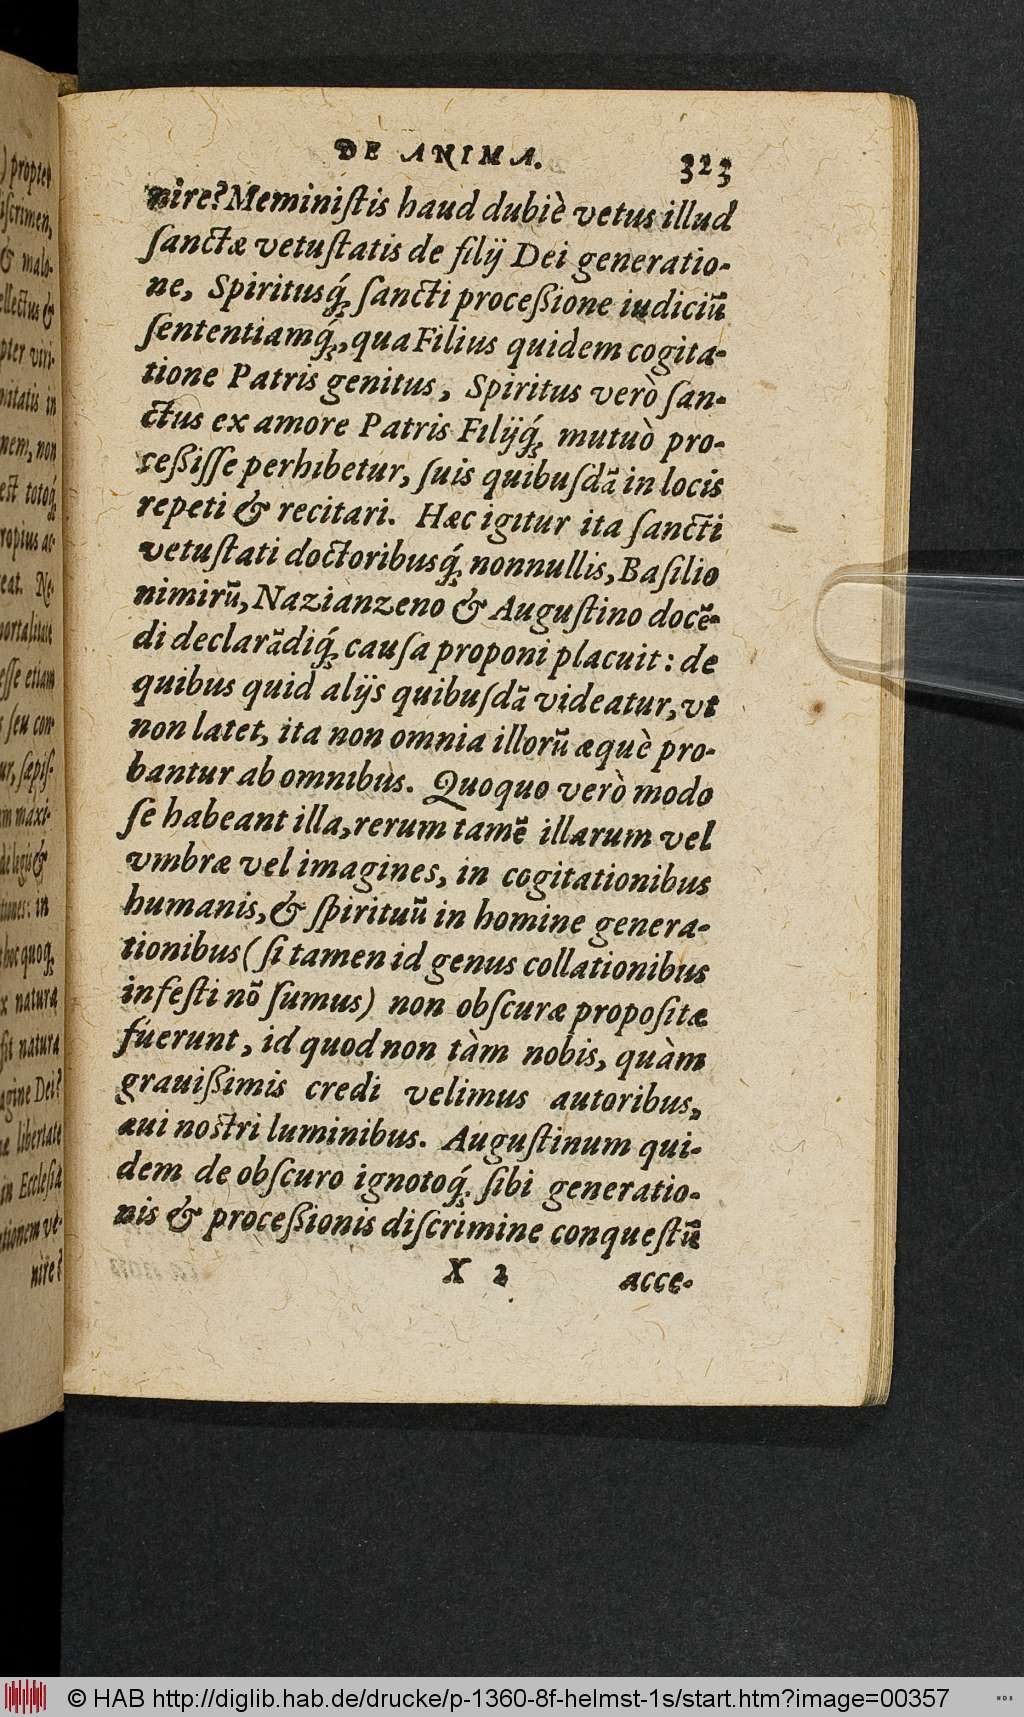 DE ANIMA. 323
nire? Meministis haud dubiè vetus illud
ſanctæ vetuſtatis de filij Dei generatio-
ne, Spiritusq́; ſancti proceßione iudiciũ
ſententiamq́;, qua Filius quidem cogita-
tione Patris genitus, Spiritus verò ſan-
ctus ex amore Patris Filijq́; mutuò pro-
ceßiſſe perhibetur, ſuis quibuſdã in locis
repeti & recitari. Hæc igitur ita ſancti
vetuſtati doctoribusq́; nonnullis, Baſilio
nimirũ, Nazianzeno & Auguſtino docẽ-
di declarãdiq́; cauſa proponi placuit: de
quibus quid alijs quibuſdã videatur, vt
non latet, ita non omnia illorũ æquè pro-
bantur ab omnibus. Quoquo verò modo
ſe habeant illa, rerum tamẽ illarum vel
vmbræ vel imagines, in cogitationibus
humanis, & ſpirituũ in homine genera-
tionibus (ſi tamen id genus collationibus
infeſti nõ ſumus) non obſcuræ propoſitæ
fuerunt, id quod non tàm nobis, quàm
grauißimis credi velimus autoribus,
æui nostri luminibus. Auguſtinum qui-
dem de obſcuro ignotoq́; ſibi generatio-
nis & proceßionis diſcrimine conqueſtũ
X 2 acce-
) propter
iſcrimen,
& malo-
ellectus &
pter viri-
nitatis in
nem, non
est totoq́;
ropius ac-
eat. Ne-
mortalitate
eſſe etiam
s ſeu con-
ur, ſæpiſ-
em maxi-
de legis &
tiones: in
hoc quoq;
x natura
ſit natura
agine Dei?
æ libertate
in Eccleſia
ationem ve-
nire?
© HAB http://diglib.hab.de/drucke/p-1360-8f-helmst-1s/start.htm?image=00357